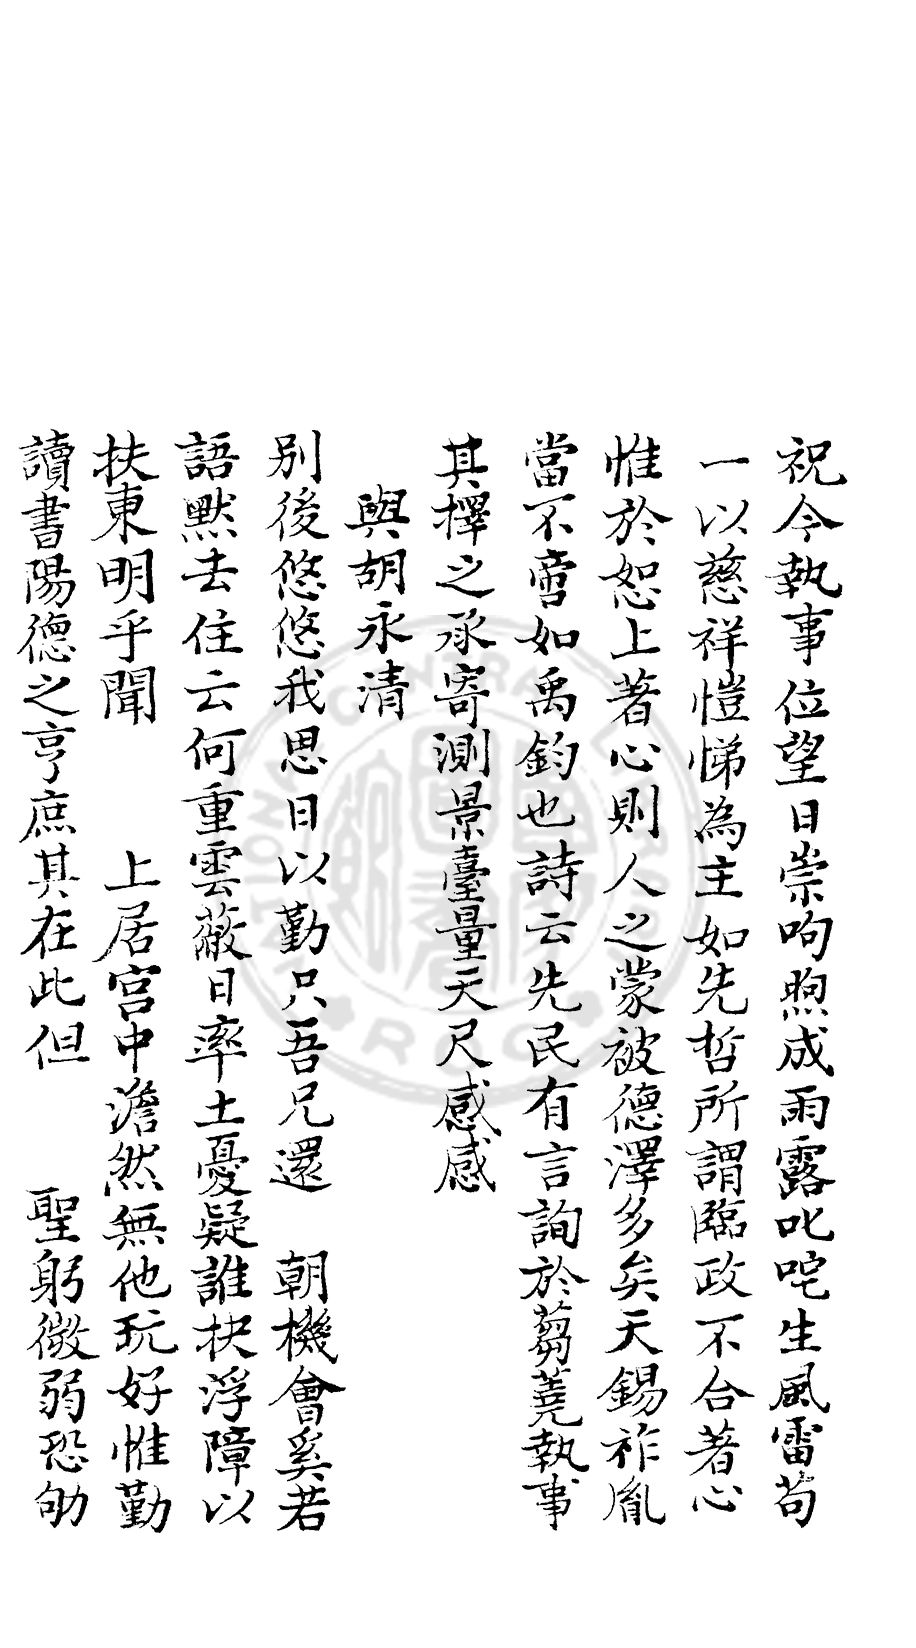 祝今執事位望日崇呴煦成雨露叱咤生風雷苟
一以慈祥愷悌為主如先哲所謂臨政不合著心
惟於恕上著心則人之蒙被德澤多矣天錫祚胤
當不啻如禹鈞也詩云先民有言詢於蒭蕘執事
其擇之承寄測景臺量天尺感感
與胡永清
別後悠悠我思日以勤只吾兄還 朝機會奚若
語默去住云何重雲蔽日率土憂疑誰抉浮障以
扶東明乎聞 上居宮中澹然無他玩好惟勤
讀書陽德之亨庶其在此但 聖躬微弱恐劬
NATIONAL CENTRAL LIBRARY R.O.C.